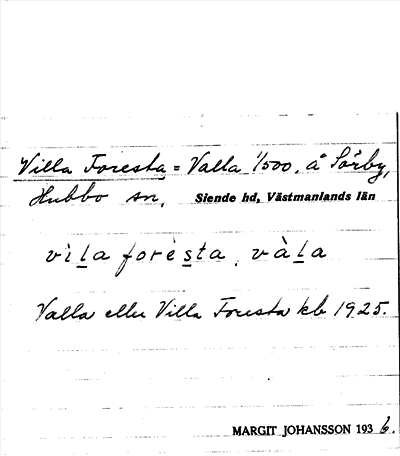 Villa Foresta = Valla 1/500, å Sörby,
Hubbo sn, Siende hd, Västmanlands län
vìla forèsta, vàla
Valla eller Villa Foresta kb 1925.
MARGIT JOHANSSON 1936.